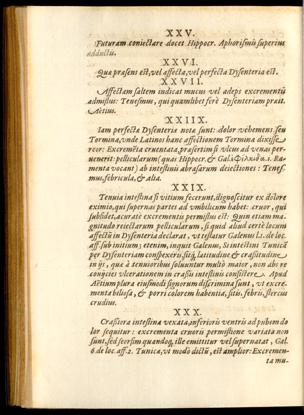 XXV.
Futuram coniectare docet Hippocr. Aphorismis superius
adductis.
XXVI.
Qua præsens est, vel affecta, vel perfecta Dysenteria est.
XXVII.
Affectam saltem indicat mucus vel adeps excrementis
admistus: Tenesmus, qui quamlibet ferè Dysenteriam præit.
Aetius.
XXIIX.
Iam perfectæ Dysenteriæ nota sunt: dolor vehemens seu
Tormina, unde Latinos hanc affectionem Tormina dixisse
reor: Excremēta cruentata, præsertim si ulcus ad venas per-
uenerit: pellicularum (quas Hippocr. & Gal.
menta vocant) ab intestinis abrasarum deiectiones: Tenes-
mus, febricula, & alia.
XXIX.
Tenuia intestina si vitium fecerunt, dignoscitur ex dolore
eximio, qui supernas partes ad vmbilicum habet: cruor, qui
sublidet, acuratè excrementis permistus est: Quin etiam ma-
gnitudo reiectarum pellicularum, si quid aliud certè locum
affectū in Dysenteria declarat, vt testatur Galenus l.1. de loc.
aff. sub initium; etenim, inquit Galenus, Si intestini Tunicā
per Dysenteriam conspexeris, sitq́, latitudine & crassitudine
in ijs, quæ à tenuioribus soluuntur multò maior, non abs re
conijcies vlcerationem in crassis intestinis consistere. Apud
Aetium plura eiusmodi signorum discrimina sunt, vt excre-
menta biliosa, & porri colorem habentia, sitis, febris, stercus
crudius.
XXX.
Crassiora intestina vexata, inferioris ventris ad pubem do-
lor sequitur: excrementa cruoris permistione variata non
sunt, sed seorsim quandoq, ille emittitur vel supernatat, Gal.
6. de loc. aff. 2. Tunica, vt modò dictū, est amplior: Excremen-
ta mu-